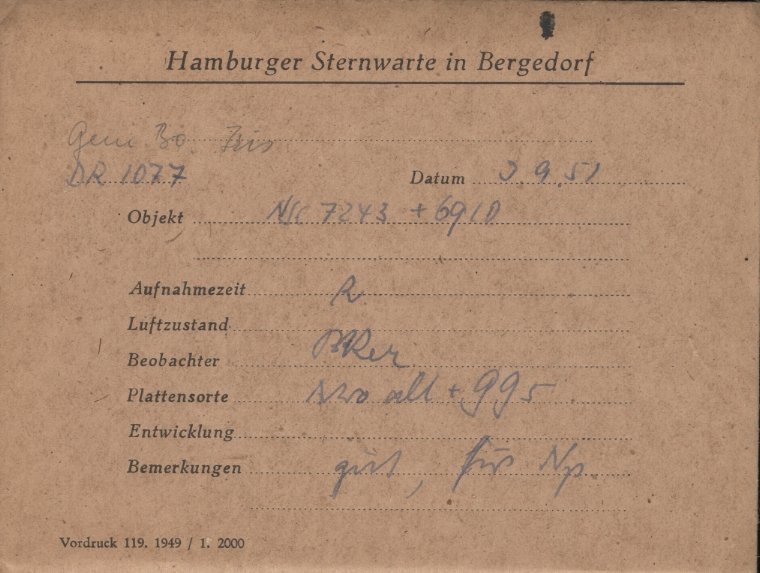 Hamburger Sternwarte in Bergedorf
DR 1077 Datum 3.9.51
Objekt NGC 7243 + 6910
Aufnahmezeit R
Luftzustand
Beobachter
Plattensorte alt + 995
Entwicklung
Bemerkungen gut, für Np.
Vordruck 119. 1949 / 1. 2000